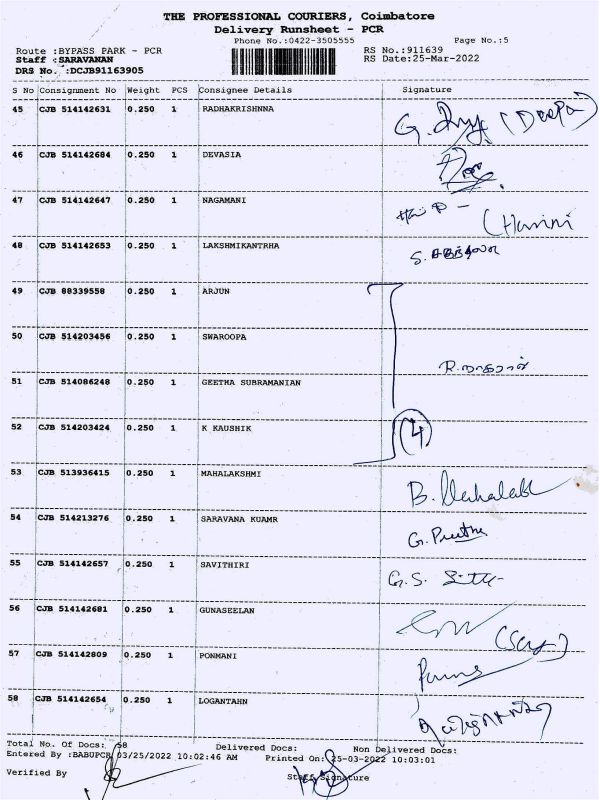 THE PROFESSIONAL COURIERS, Coimbatore
Delivery Runsheet - PCR
Phone No.:0422-3505555 Page No.:5
Route :BYPASS PARK - PCR RS No.:911639
Staff :SARAVANAN RS Date:25-Mar-2022
DRS No. :DCJB91163905
S No Consignment No Weight PCS Consignee Details Signature
45 CJB 514142631 0.250 1 RADHAKRISHNNA G. (Deepa)
46 CJB 514142684 0.250 1 DEVASIA
47 CJB 514142647 0.250 1 NAGAMANI (Harini
48 CJB 514142653 0.250 1 LAKSHMIKANTRHA S.
49 CJB 88339558 0.250 1 ARJUN
50 CJB 514203456 0.250 1 SWAROOPA
51 CJB 514086248 0.250 1 GEETHA SUBRAMANIAN R.
52 CJB 514203424 0.250 1 K KAUSHIK 4
53 CJB 513936415 0.250 1 MAHALAKSHMI B.
54 CJB 514213276 0.250 1 SARAVANA KUAMR G. Preetha
55 CJB 514142657 0.250 1 SAVITHIRI G.S.
56 CJB 514142681 0.250 1 GUNASEELAN
57 CJB 514142809 0.250 1 PONMANI
58 CJB 514142654 0.250 1 LOGANTAHN
Total No. Of Docs: 58 Delivered Docs: Non Delivered Docs:
Entered By :BABUPCR 03/25/2022 10:02:46 AM Printed On: 25-03-2022 10:03:01
Verified By Staff Signature